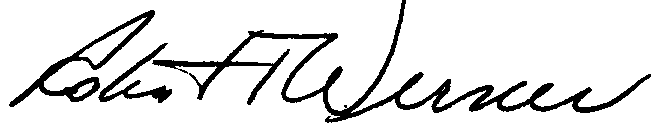 Robert F Werner